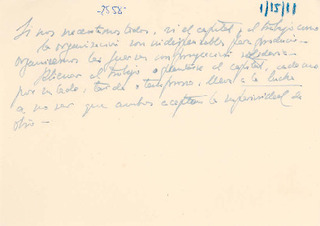 -7556-
1/15/81
Si nos necesitamos todos, ni el capital, el trabajo como
la organización son indispensables para producir.
Organicemos las fuerzas con proyección solidaria.
al trabajo o al capital, cada uno
por su lado, tarde o temprano, lleva a la lucha
a no ser que ambos acepten la superioridad de
otro -